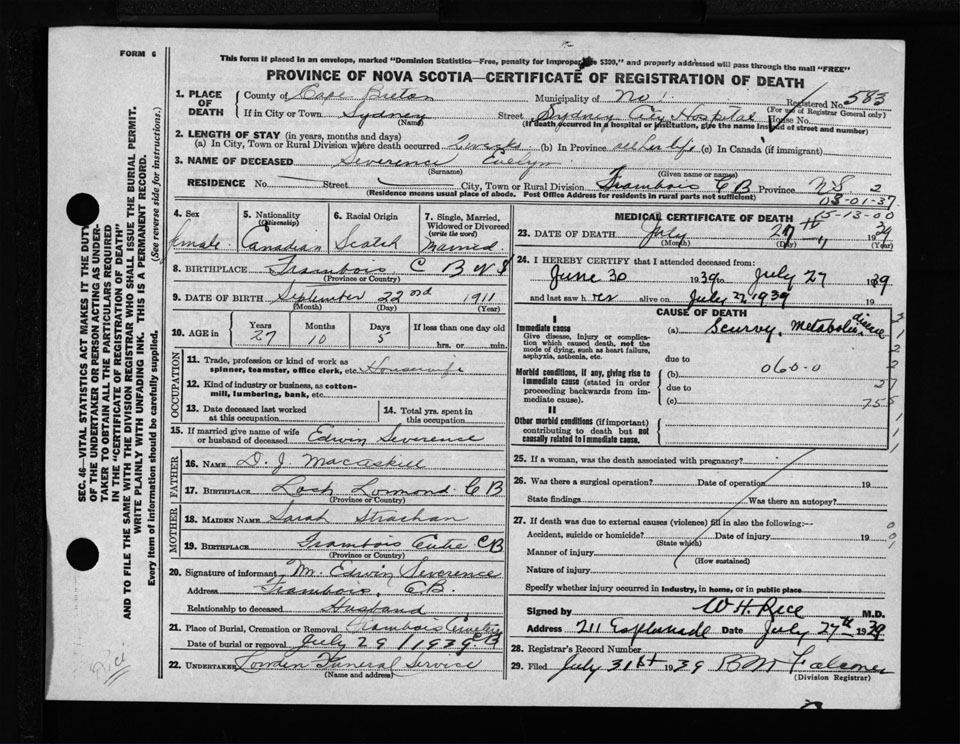 FORM 6
This form if placed in an envelope, marked "Dominion Statistics—Free, penalty for improper use $300," and properly addressed will pass through the mail "FREE"
PROVINCE OF NOVA SCOTIA—CERTIFICATE OF REGISTRATION OF DEATH
1. PLACE OF DEATH
County of Cape Breton Municipality of No 1. Registered No. 583
(For use of Registrar General only)
If in City or Town Sydney Street Sydney City Hospital House No.
(Name) (If death occurred in a hospital or institution, give the name instead of street and number)
2. LENGTH OF STAY (in years, months and days)
(a) In City, Town or Rural Division where death occurred 2 weeks (b) In Province all her life (c) In Canada (if immigrant)
3. NAME OF DECEASED Severence Evelyn
(Surname) (Given name or names)
RESIDENCE No. Street City, Town or Rural Division Frambois C B Province N.S. 2
(Residence means usual place of abode. Post Office Address for residents in rural parts not sufficient)
03-01-37
15-13-00
4. Sex female
5. Nationality (Citizenship) Canadian
6. Racial Origin Scotch
7. Single, Married, Widowed or Divorced (write the word) Married
8. BIRTHPLACE Frambois C B N S
(Province or Country)
9. DATE OF BIRTH September 22nd 1911
(Month) (Day) (Year)
10. AGE in Years 27 Months 10 Days 5 If less than one day old hrs. or min.
OCCUPATION
11. Trade, profession or kind of work as spinner, teamster, office clerk, etc. Housewife
12. Kind of industry or business, as cotton-mill, lumbering, bank, etc.
13. Date deceased last worked at this occupation
14. Total yrs. spent in this occupation
15. If married give name of wife or husband of deceased Edwin Severence
FATHER
16. NAME D. J. MacAskill
17. BIRTHPLACE Loch Lomond C B
(Province or Country)
MOTHER
18. MAIDEN NAME Sarah Strachan
19. BIRTHPLACE Frambois C B
(Province or Country)
20. Signature of informant Mr. Edwin Severence
Address Frambois, C B.
Relationship to deceased Husband
21. Place of Burial, Cremation or Removal Frambois Cemetery C B
Date of burial or removal July 29 1939
22. UNDERTAKER Lowden Funeral Service
(Name and address)
MEDICAL CERTIFICATE OF DEATH
23. DATE OF DEATH July 27th 1939
(Month) (Day) (Year)
24. I HEREBY CERTIFY that I attended deceased from:
June 30 1939 to July 27 1939
and last saw her alive on July 27 1939 19
CAUSE OF DEATH
I
Immediate cause
Give disease, injury or complication which caused death, not the mode of dying, such as heart failure, asphyxia, asthenia, etc.
(a) Scurvy, metabolic disease
due to
Morbid conditions, if any, giving rise to immediate cause (stated in order proceeding backwards from immediate cause).
(b) 060-0
due to
(c) 755
II
Other morbid conditions (if important) contributing to death but not causally related to immediate cause.
25. If a woman, was the death associated with pregnancy?
26. Was there a surgical operation? Date of operation 19
State findings Was there an autopsy?
27. If death was due to external causes (violence) fill in also the following:—
Accident, suicide or homicide? Date of injury 19
(State which)
Manner of injury
(How sustained)
Nature of injury
Specify whether injury occurred in industry, in home, or in public place
Signed by W H. Rice M.D.
Address 211 Esplanade Date July 27th 1939
28. Registrar's Record Number
29. Filed July 31st 1939 B M Falconer
(Division Registrar)
SEC. 46—VITAL STATISTICS ACT MAKES IT THE DUTY
OF THE UNDERTAKER OR PERSON ACTING AS UNDER-
TAKER TO OBTAIN ALL THE PARTICULARS REQUIRED
IN THE "CERTIFICATE OF REGISTRATION OF DEATH"
AND TO FILE THE SAME WITH THE DIVISION REGISTRAR WHO SHALL ISSUE THE BURIAL PERMIT.
WRITE PLAINLY WITH UNFADING INK. THIS IS A PERMANENT RECORD.
Every item of information should be carefully supplied. (See reverse side for instructions.)
Rice